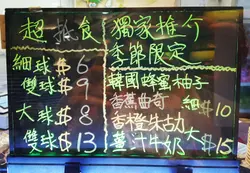 超抵食
細球$6
雙球$9
大球$8
雙球$13
獨家推介
季節限定
韓國蜂蜜柚子
香蕉曲奇
細$10
香橙朱古力
薑汁牛奶
大$15